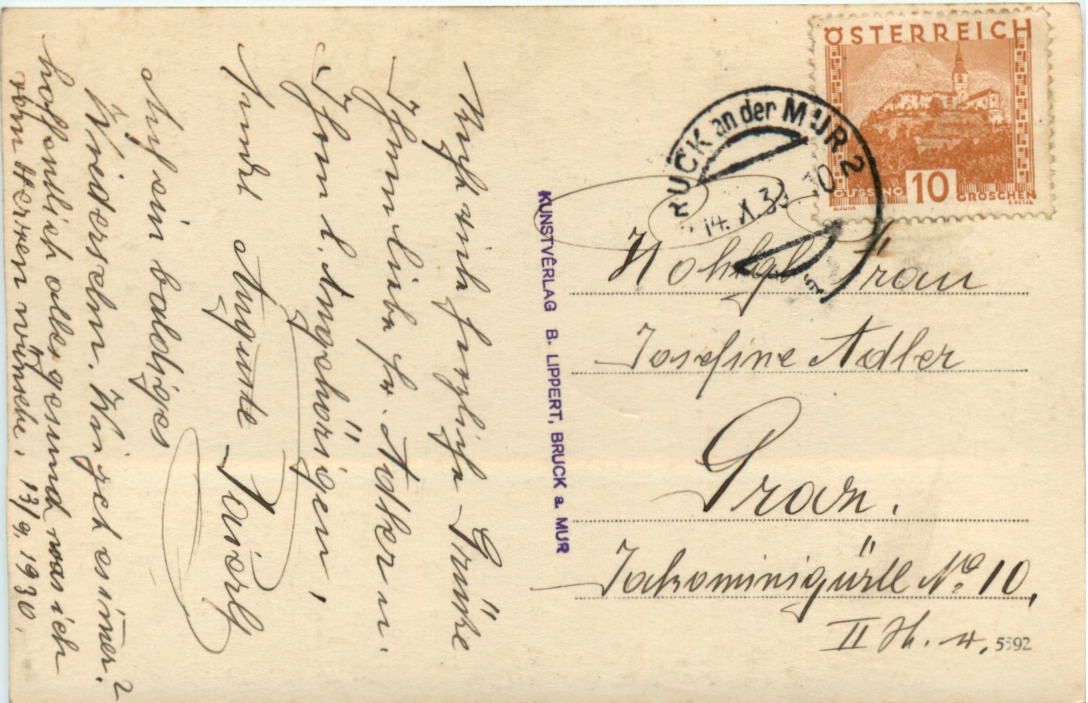 Recht viele herzliche Grüße
Ihnen liebe Fr. Adler u.
Ihren l. Angehörigen,
sendet Auguste
Auf ein baldiges
Wiedersehn. Wie geht es immer?
hoffentlich alles gesund was ich
vom Herzen wünsche. 1930.
KUNSTVERLAG B. LIPPERT, BRUCK a. MUR
ÖSTERREICH
GÜSSING 10 GROSCHEN
BRUCK an der MUR 2
14. X. 30
Wohlgb. Frau
Josefine Adler
Graz.
Jakominigürtel No 10,
II St.
5592